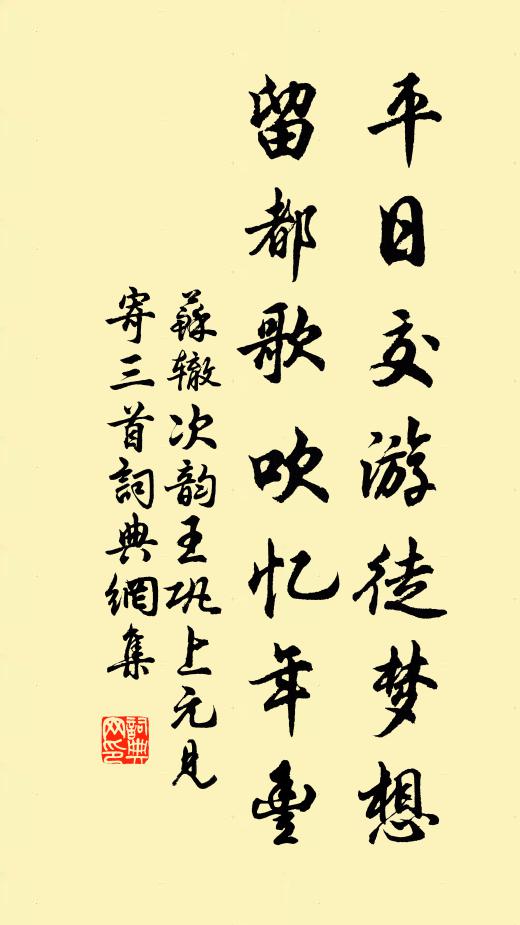 平日交游徒梦想
留都歌吹忆年豊
蘇辙次韵王巩上元見
寄三首詞典網集
詞典网印